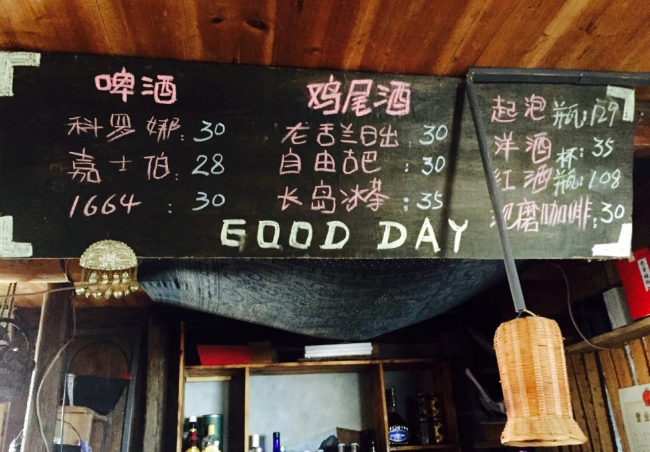 啤酒
科罗娜: 30
嘉士伯: 28
1664 : 30
鸡尾酒
龙舌兰日出 30
自由古巴 : 30
长岛冰茶 : 35
起泡 瓶: 129
洋酒 杯: 35
红酒 瓶: 108
现磨咖啡: 30
GOOD DAY